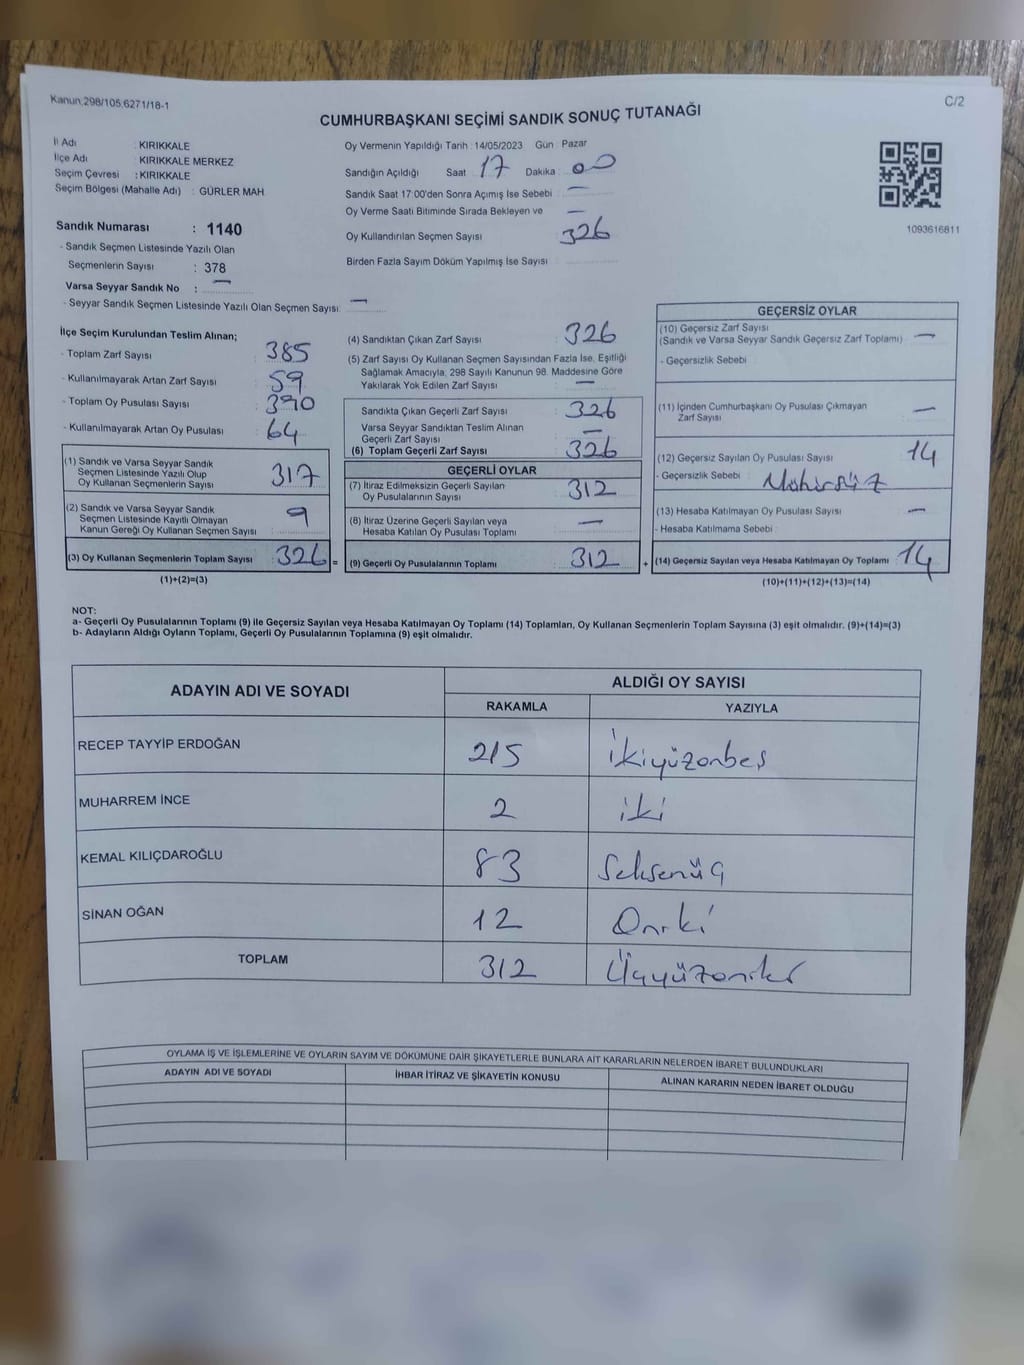 Kanun:298/105;6271/18-1
C/2
CUMHURBAŞKANI SEÇİMİ SANDIK SONUÇ TUTANAĞI
İl Adı : KIRIKKALE
İlçe Adı : KIRIKKALE MERKEZ
Seçim Çevresi : KIRIKKALE
Seçim Bölgesi (Mahalle Adı) : GÜRLER MAH
Oy Vermenin Yapıldığı Tarih : 14/05/2023 Gün : Pazar
Sandığın Açıldığı Saat : 17 Dakika : 00
Sandık Saat 17:00'den Sonra Açımış İse Sebebi : —
Oy Verme Saati Bitiminde Sırada Bekleyen ve —
Oy Kullandırılan Seçmen Sayısı : 326
Birden Fazla Sayım Döküm Yapılmış İse Sayısı :
1093616811
Sandık Numarası : 1140
- Sandık Seçmen Listesinde Yazılı Olan
Seçmenlerin Sayısı : 378
Varsa Seyyar Sandık No : —
- Seyyar Sandık Seçmen Listesinde Yazılı Olan Seçmen Sayısı: —
İlçe Seçim Kurulundan Teslim Alınan;
- Toplam Zarf Sayısı : 385
- Kullanılmayarak Artan Zarf Sayısı : 59
- Toplam Oy Pusulası Sayısı : 390
- Kullanılmayarak Artan Oy Pusulası : 64
(1) Sandık ve Varsa Seyyar Sandık
Seçmen Listesinde Yazılı Olup
Oy Kullanan Seçmenlerin Sayısı : 317
(2) Sandık ve Varsa Seyyar Sandık
Seçmen Listesinde Kayıtlı Olmayan
Kanun Gereği Oy Kullanan Seçmen Sayısı : 9
(3) Oy Kullanan Seçmenlerin Toplam Sayısı : 326 =
(1)+(2)=(3)
(4) Sandıktan Çıkan Zarf Sayısı : 326
(5) Zarf Sayısı Oy Kullanan Seçmen Sayısından Fazla İse, Eşitliği
Sağlamak Amacıyla, 298 Sayılı Kanunun 98. Maddesine Göre
Yakılarak Yok Edilen Zarf Sayısı : —
Sandıkta Çıkan Geçerli Zarf Sayısı : 326
Varsa Seyyar Sandıktan Teslim Alınan
Geçerli Zarf Sayısı : —
(6) Toplam Geçerli Zarf Sayısı : 326
GEÇERLİ OYLAR
(7) İtiraz Edilmeksizin Geçerli Sayılan
Oy Pusulalarının Sayısı : 312
(8) İtiraz Üzerine Geçerli Sayılan veya
Hesaba Katılan Oy Pusulası Toplamı : —
(9) Geçerli Oy Pusulalarının Toplamı : 312 +
GEÇERSİZ OYLAR
(10) Geçersiz Zarf Sayısı
(Sandık ve Varsa Seyyar Sandık Geçersiz Zarf Toplamı) : —
- Geçersizlik Sebebi :
(11) İçinden Cumhurbaşkanı Oy Pusulası Çıkmayan
Zarf Sayısı : —
(12) Geçersiz Sayılan Oy Pusulası Sayısı : 14
- Geçersizlik Sebebi : Mühürsüz
(13) Hesaba Katılmayan Oy Pusulası Sayısı : —
- Hesaba Katılmama Sebebi :
(14) Geçersiz Sayılan veya Hesaba Katılmayan Oy Toplamı : 14
(10)+(11)+(12)+(13)=(14)
NOT:
a- Geçerli Oy Pusulalarının Toplamı (9) ile Geçersiz Sayılan veya Hesaba Katılmayan Oy Toplamı (14) Toplamları, Oy Kullanan Seçmenlerin Toplam Sayısına (3) eşit olmalıdır. (9)+(14)=(3)
b- Adayların Aldığı Oyların Toplamı, Geçerli Oy Pusulalarının Toplamına (9) eşit olmalıdır.
ADAYIN ADI VE SOYADI
ALDIĞI OY SAYISI
RAKAMLA YAZIYLA
RECEP TAYYİP ERDOĞAN 215 ikiyüzonbeş
MUHARREM İNCE 2 iki
KEMAL KILIÇDAROĞLU 83 Seksenüç
SİNAN OĞAN 12 Oniki
TOPLAM 312 Üçyüzoniki
OYLAMA İŞ VE İŞLEMLERİNE VE OYLARIN SAYIM VE DÖKÜMÜNE DAİR ŞİKAYETLERLE BUNLARA AİT KARARLARIN NELERDEN İBARET BULUNDUKLARI
ADAYIN ADI VE SOYADI İHBAR İTİRAZ VE ŞİKAYETİN KONUSU ALINAN KARARIN NEDEN İBARET OLDUĞU